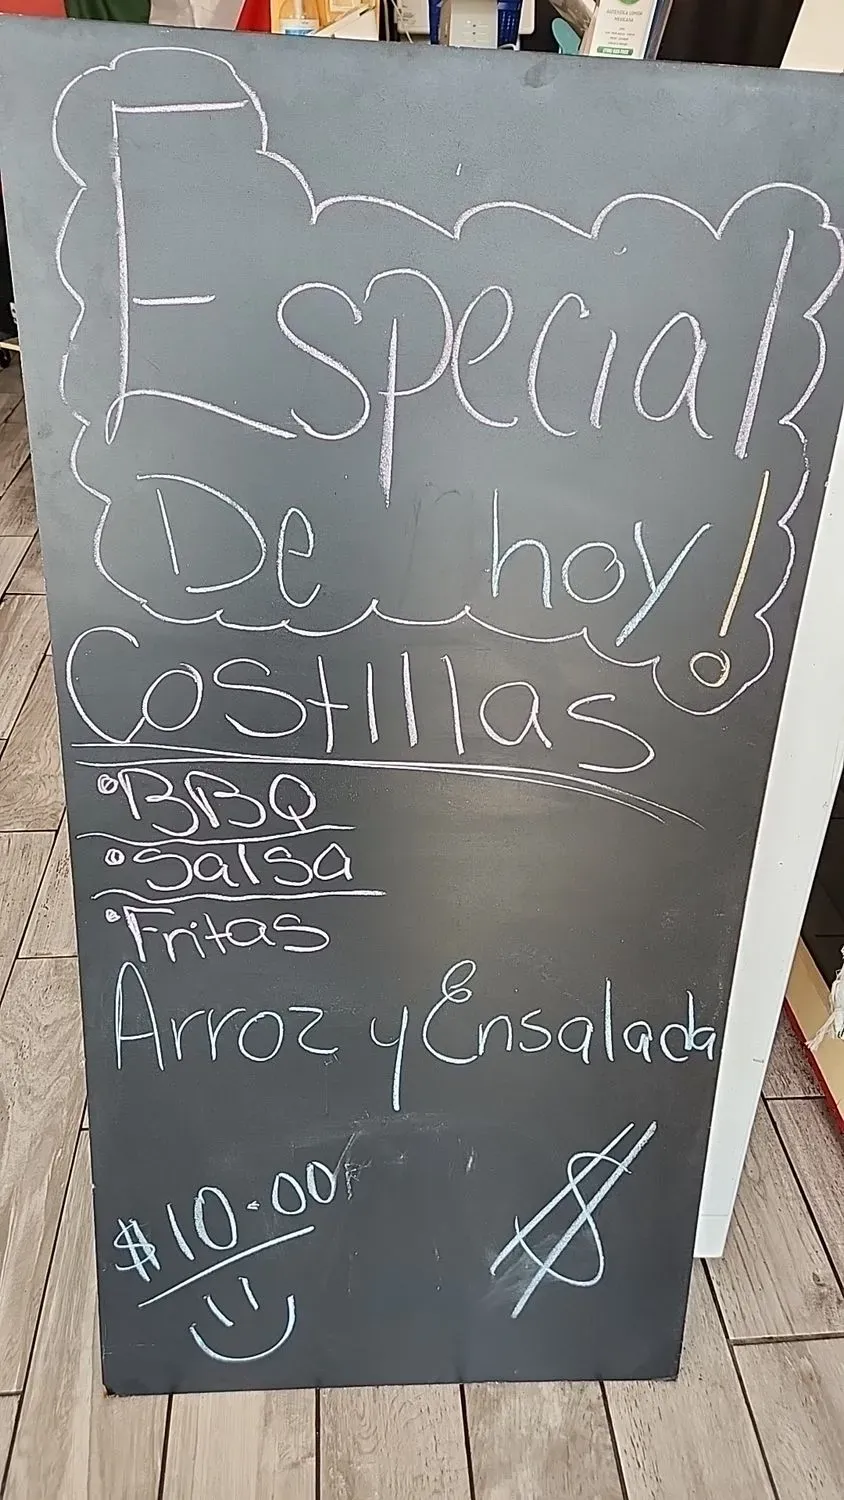 Especial
De hoy!
Costillas
•BBQ
•Salsa
•Fritas
Arroz y Ensalada
$10.00
$